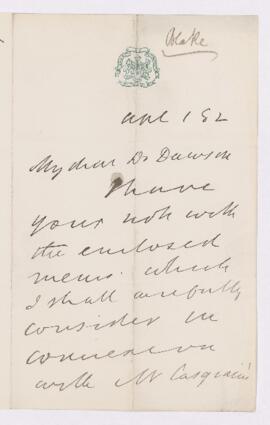 Blake
April 1 82
My dear Dr Dawson
I have
your note with
the enclosed
memo. which
I shall carefully
consider in
connexion
with Mr Casgrain's